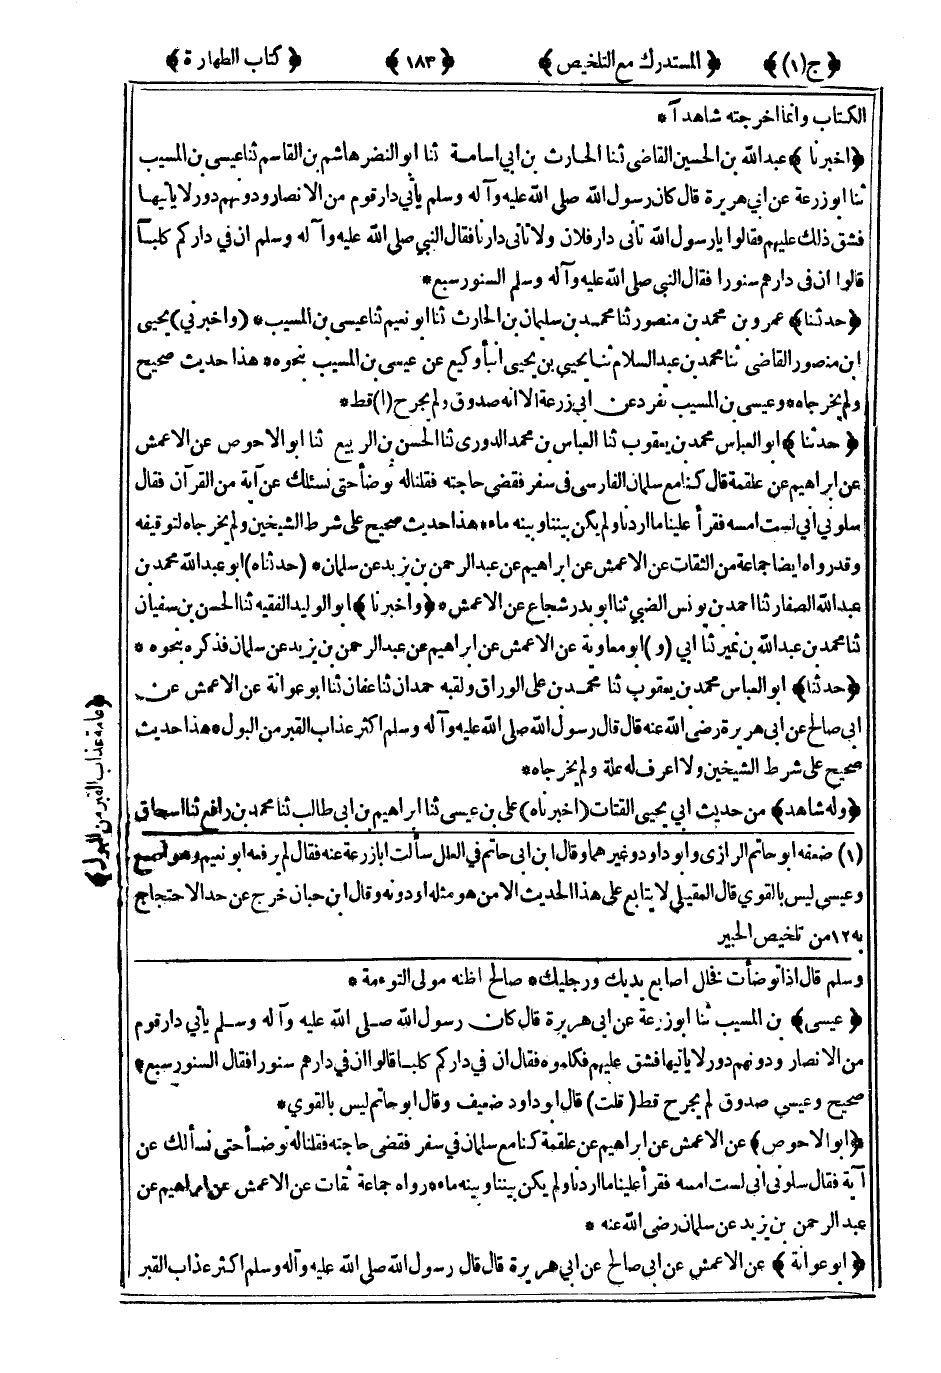 ﴿ج(١)﴾ ﴿المستدرك مع التلخيص﴾ ﴿١٨٣﴾ ﴿كتاب الطهارة﴾
الكتاب وانما اخرجته شاهدآ *
﴿اخبرنا﴾ عبدالله بن الحسين القاضى ثنا الحارث بن ابي اسامة ثنا ابو النضر هاشم بن القاسم ثنا عيسى بن المسيب
ثنا ابوزرعة عن ابي هريرة قال كان رسول الله صلى الله عليه وآله وسلم يأتي دار قوم من الانصار ودونهم دور لا يأتيها
فشق ذلك عليهم فقالوا يارسول الله تاتى دار فلان ولا تاتى دارنا فقال النبي صلى الله عليه وآله وسلم ان فى داركم كلباً
قالوا ان فى دارهم سنورا فقال النبي صلى الله عليه وآله وسلم السنور سبع *
﴿حدثنا﴾ عمرو بن محمد بن منصور ثنا محمد بن سليمان بن الحارث ثنا ابو نعيم ثنا عيسى بن المسيب * (واخبرني) يحيى
ابن منصور القاضى ثنا محمد بن عبد السلام ثنا يحيى بن يحيى انبأ وكيع عن عيسى بن المسيب بنحوه * هذا حديث صحيح
ولم يخرجاه * وعيسى بن المسيب تفرد عن ابي زرعة الا انه صدوق ولم يجرح (١) قط *
﴿حدثنا﴾ ابو العباس محمد بن يعقوب ثنا العباس بن محمد الدورى ثنا الحسن بن الربيع ثنا ابو الاحوص عن الاعمش
عن ابراهيم عن علقمة قال كنا مع سلمان الفارسى فى سفر فقضى حاجته فقلنا له توضأ حتى نسئلك عن آية من القرآن فقال
سلوني انى لست امسه فقرأ علينا ما اردنا ولم يكن بيننا وبينه ماء * هذا حديث صحيح على شرط الشيخين ولم يخرجاه لتوقيفه
وقد رواه ايضا جماعة من الثقات عن الاعمش عن ابراهيم عن عبد الرحمن بن يزيد عن سلمان * (حدثناه) ابو عبدالله محمد بن
عبدالله الصفار ثنا احمد بن يونس الضبي ثنا ابو بدر شجاع عن الاعمش * ﴿واخبرنا﴾ ابو الوليد الفقيه ثنا الحسن بن سفيان
ثنا محمد بن عبدالله بن نمير ثنا ابي (و) ابو معاوية عن الاعمش عن ابراهيم عن عبد الرحمن بن يزيد عن سلمان فذكره بنحوه *
﴿حدثنا﴾ ابو العباس محمد بن يعقوب ثنا محمد بن على الوراق ولقبه حمدان ثنا عفان ثنا ابو عوانة عن الاعمش عن
ابى صالح عن ابى هريرة رضى الله عنه قال قال رسول الله صلى الله عليه وآله وسلم اكثر عذاب القبر من البول * هذا حديث
صحيح على شرط الشيخين ولا اعرف له علة ولم يخرجاه *
﴿وله شاهد﴾ من حديث ابي يحيى القتات (اخبرناه) على بن عيسى ثنا ابراهيم بن ابى طالب ثنا محمد بن رافع ثنا اسحاق
﴿عامة عذاب القبر من البول﴾
(١) ضعفه ابو حاتم الرازى وابو داود وغيرهما وقال ابن ابى حاتم في العلل سألت ابا زرعة عنه فقال لم يرفعه ابو نعيم وهو اصح
وعيسى ليس بالقوي قال العقيلى لا يتابع على هذا الحديث الا من هو مثله او دونه وقال ابن حبان خرج عن حد الاحتجاج
به ١٢ من تلخيص الحبير
وسلم قال اذا توضأت فخلل اصابع يديك ورجليك * صالح اظنه مولى التوءمة *
﴿عيسى﴾ بن المسيب ثنا ابو زرعة عن ابى هريرة قال كان رسول الله صلى الله عليه وآله وسلم يأتي دار قوم
من الانصار ودونهم دور لا يأتيها فشق عليهم فكلموه فقال ان في داركم كلبا قالوا ان في دارهم سنورا فقال السنور سبع *
صحيح وعيسى صدوق لم يجرح قط (قلت) قال ابو داود ضعيف وقال ابو حاتم ليس بالقوي *
﴿ابو الاحوص﴾ عن الاعمش عن ابراهيم عن علقمة كنا مع سلمان في سفر فقضى حاجته فقلنا له توضأ حتى نسألك عن
آية فقال سلونى انى لست امسه فقرأ علينا ما اردنا ولم يكن بيننا وبينه ماء * رواه جماعة ثقات عن الاعمش عن ابراهيم عن
عبد الرحمن بن يزيد عن سلمان رضى الله عنه *
﴿ابو عوانة﴾ عن الاعمش عن ابى صالح عن ابي هريرة قال قال رسول الله صلى الله عليه وآله وسلم اكثر عذاب القبر